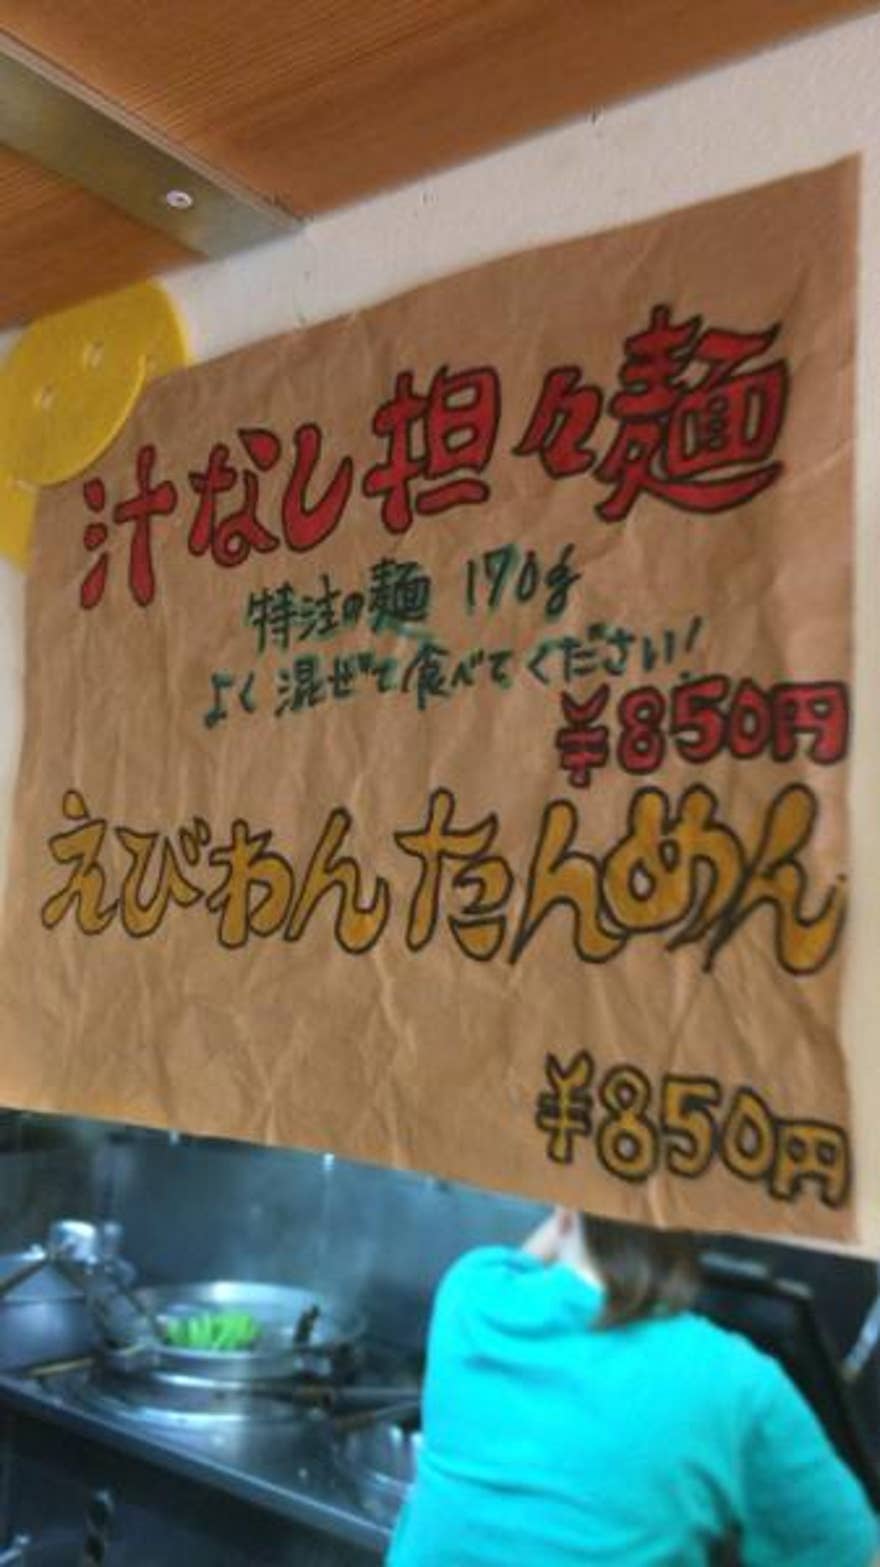 汁なし担々麺
特注の麺 170g
よく混ぜて食べてください!
¥850円
えびわんたんめん
¥850円